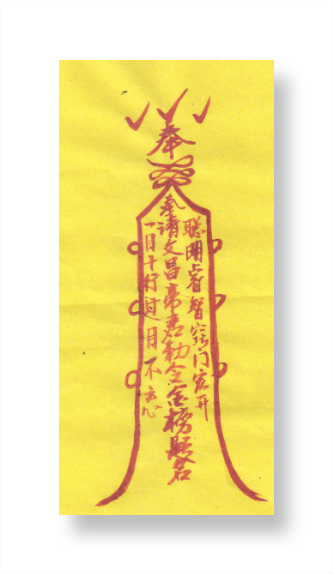 奉
聪明睿智窍门宏开
奉请文昌帝君勅令金榜题名
一目十行过目不忘